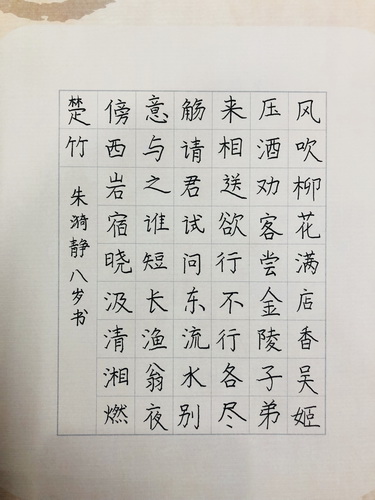 风吹柳花满店香吴姬
压酒劝客尝金陵子弟
来相送欲行不行各尽
觞请君试问东流水别
意与之谁短长渔翁夜
傍西岩宿晓汲清湘燃
楚竹 朱漪静八岁书